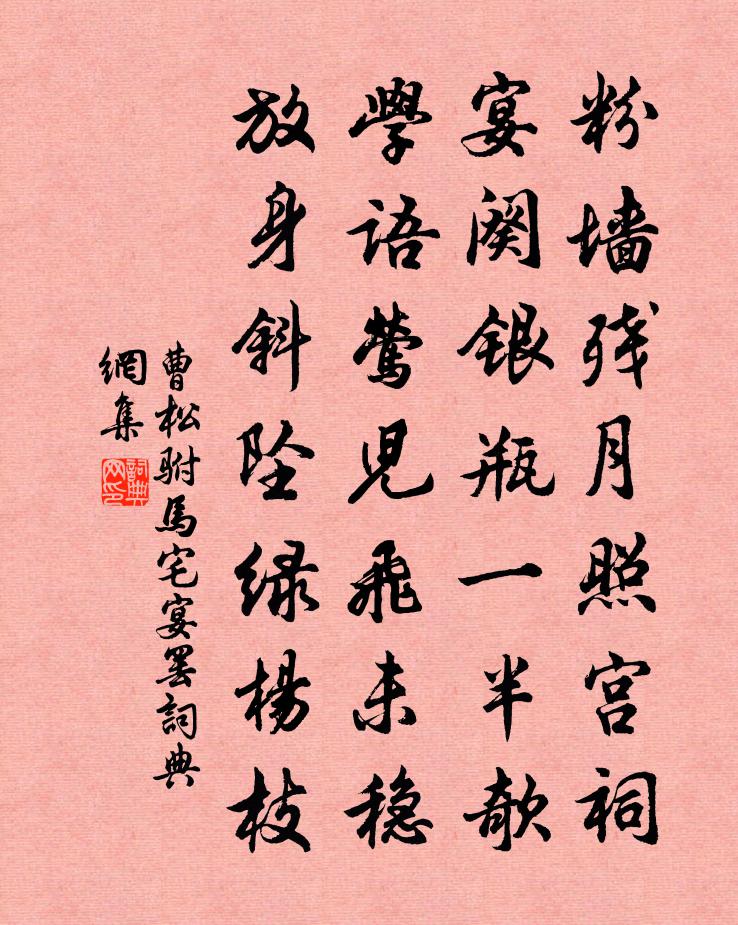 粉墙残月照宫祠
宴阕银瓶一半欹
學语莺児飞未稳
放身斜坠绿楊枝
曹松驸馬宅宴罢詞典
網集
詞典
网印